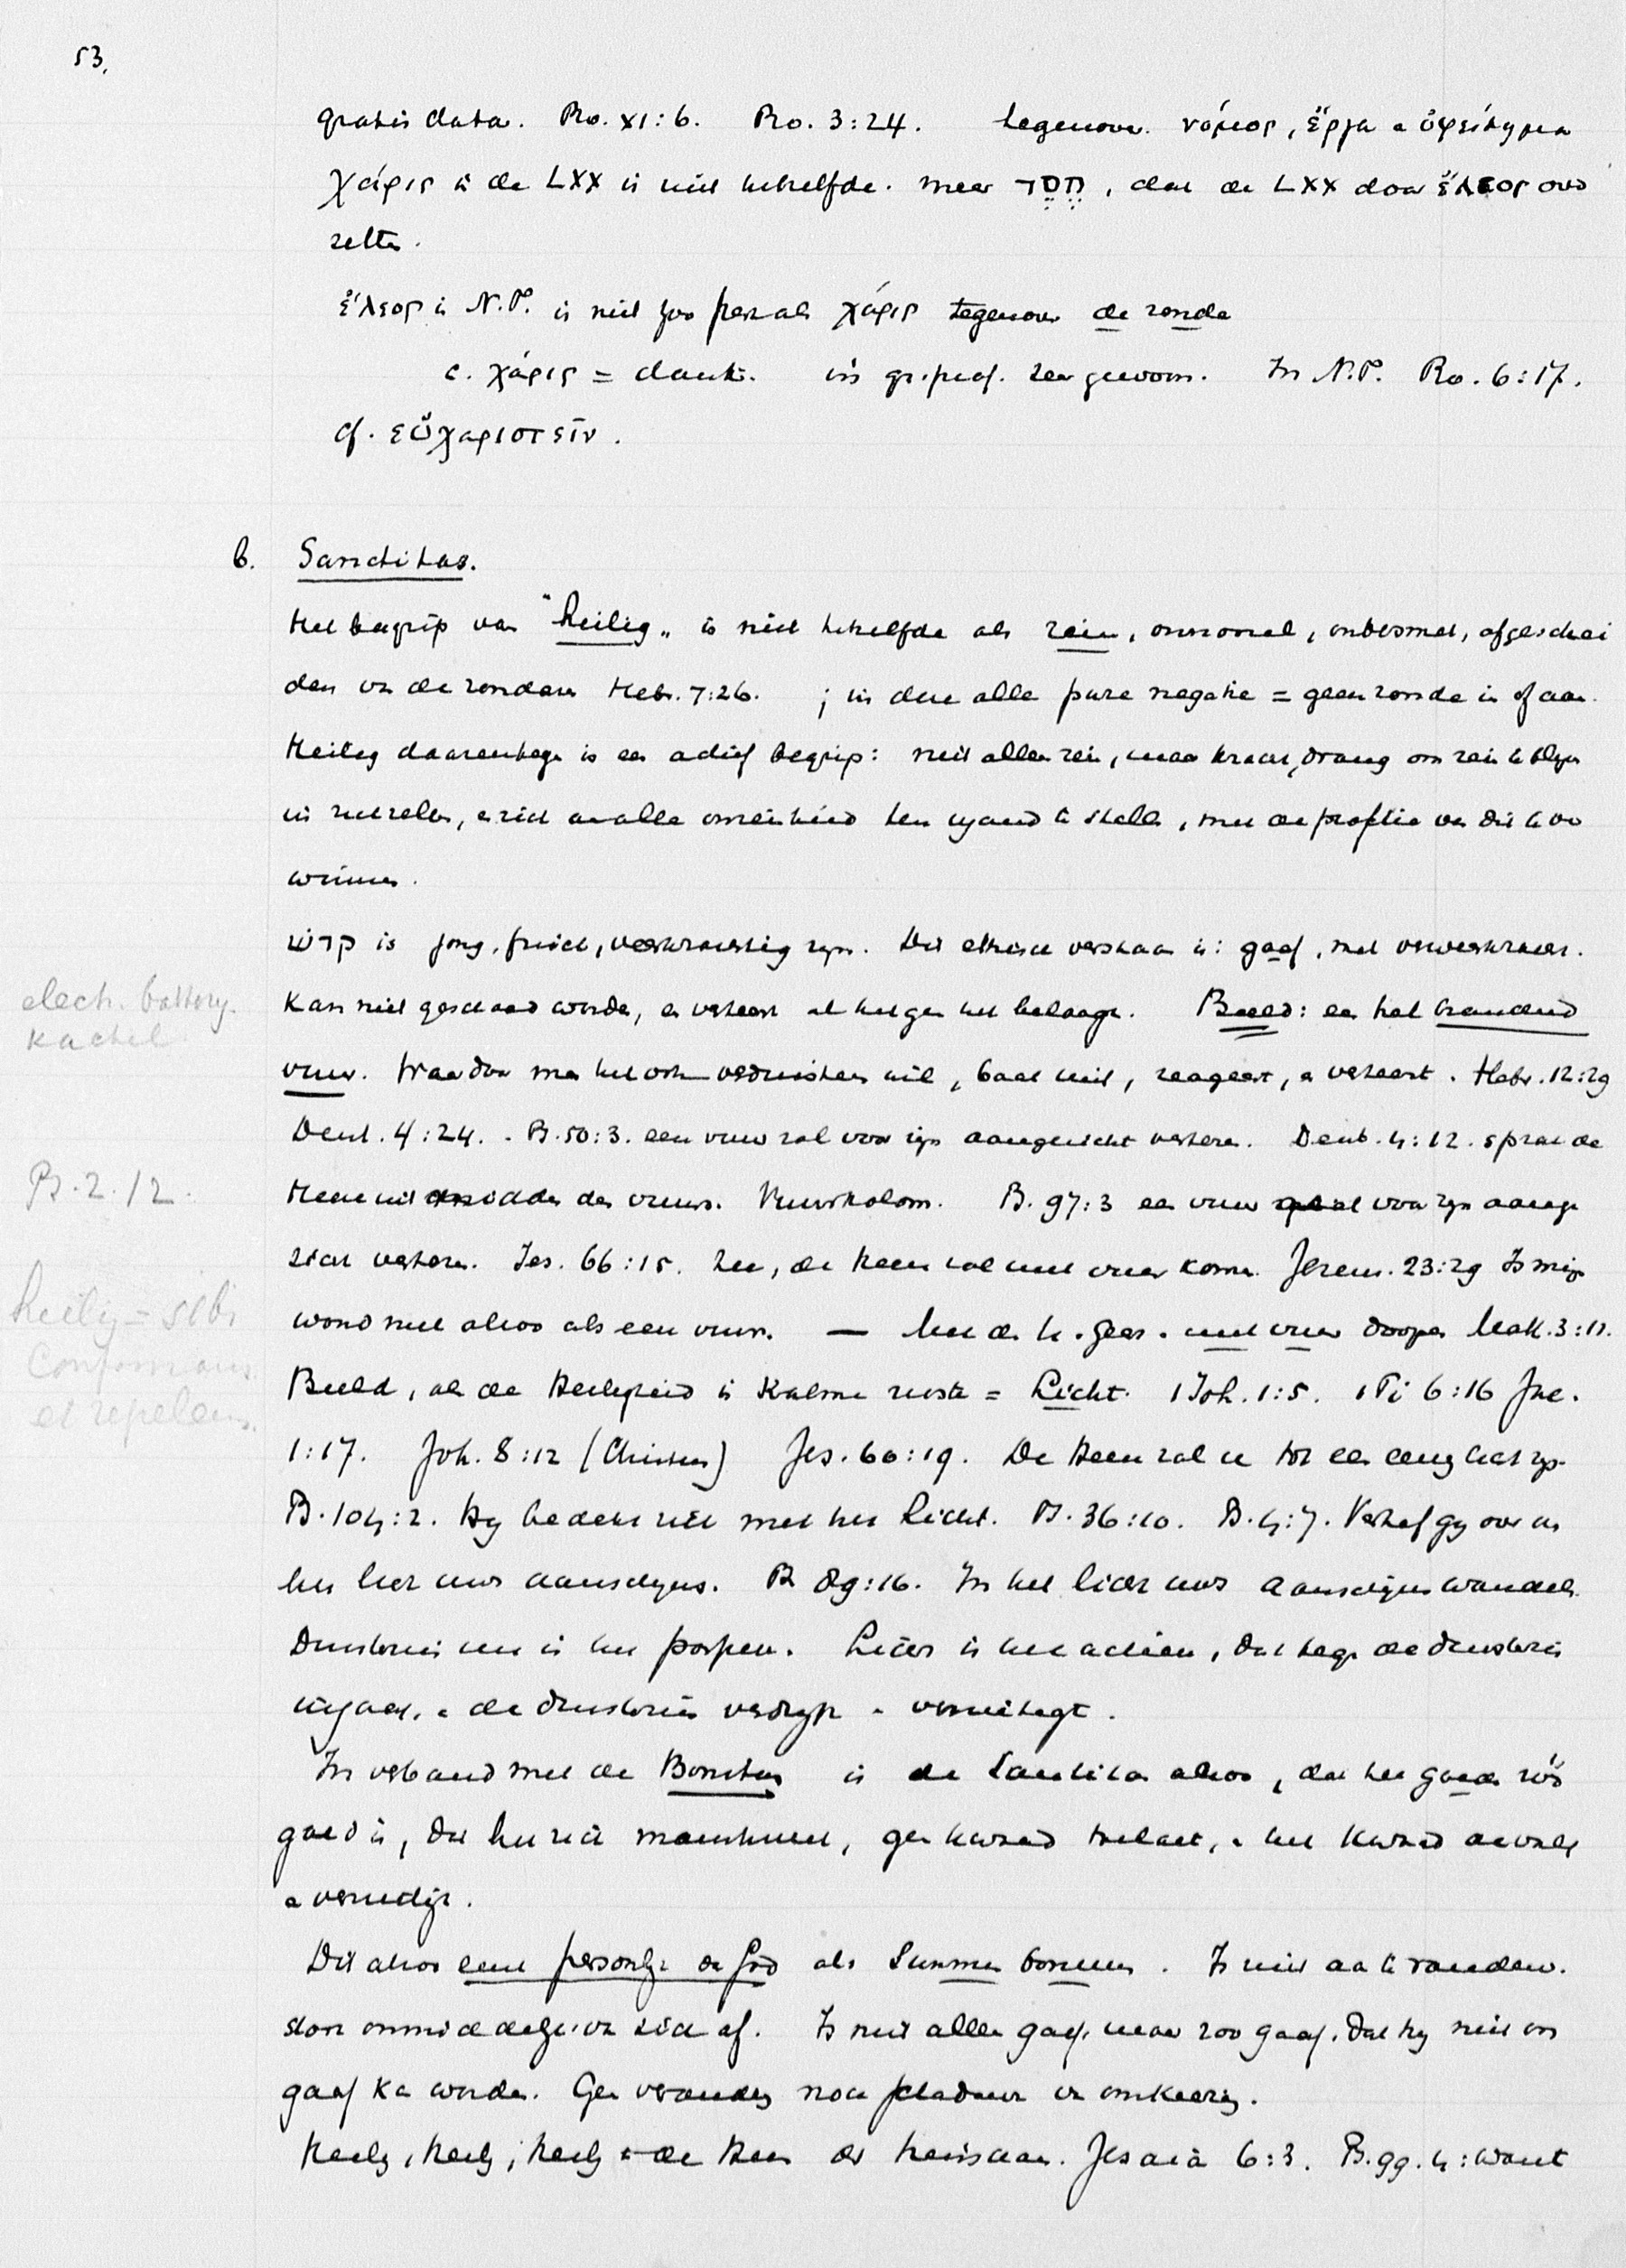 53.
gratis data. Ro. XI:6. Ro. 3:24. tegenover νόμος, ἔργα a ὀφείλημα
χάρις in de LXX is niet hetzelfde. meer חסד, dat de LXX door ἔλεος over
zetten.
ἔλεος in N.T. is niet zoo pers als χάρις tegenover de zonde
c. χάρις = dank. in gr. prof. zeer gewoon. In N.T. Ro. 6:17.
cf. εὐχαριστεῖν.
b. Sanctitas.
Het begrip van "heilig" is niet hetzelfde als rein, onnoozel, onbesmet, afgeschei
den vn de zondaren Hebr. 7:26. ; is dene alle pure negatie = geen zonde in of aan.
Heilig daarentegen is een actief begrip: niet alleen rein, maar kracht, drang om rein te blijven
in zichzelven, en zich aan alle onreinheid ten vyand te stellen, met de profetie van die te over
winnen.
קדש is jong, frisch, veerkrachtig zyn. Dit ethisch verstaan is: gaaf, met veerkracht.
Kan niet geschaad worden, en verteert al hetgeen het belaagt. Beeld: een hel brandend
elect. battery.
kachel
vuur. Waardoor men het ook verduisteren wil, baat niet, reageert, en verteert. Hebr. 12:29
Deut. 4:24. Ps. 50:3. een vuur zal voor zyn aangezicht verteren. Deut. 4:12. sprak de
Ps. 2.12.
Heere uit midden des vuurs. Vuurkolom. Ps. 97:3 een vuur voor zyn aange
zicht verteren. Jes. 66:15. Zie, de Heere zal met vuur komen. Jerem. 23:29 Is mijn
heilig = sibi
woord niet alzoo als een vuur. — Met de H. Geest en met vuur doopen Matt. 3:11.
conformans
et repelens.
Beeld, als de Heiligheid in kalme ruste = Licht. 1 Joh. 1:5. 1 Ti 6:16 Jac.
1:17. Joh. 8:12 (Christus) Jes. 60:19. De Heere zal u tot een eeuwig licht zyn.
Ps. 104:2. Hy bedekt zich met het Licht. Ps. 36:10. Ps. 4:7. Verhef gy over ons
het licht uws aanschyns. Ps 89:16. In het licht uws aanschyns wandelen.
Duisternis nu is het passieve. Licht is het actieve, dat tegen de duisternis
ingaat, en de duisternis verdrijft en vernietigt.
In verband met de Bonitas is de Sanctitas alzoo, dat het goede zóó
goed is, dat het zich maintineert, geen kwaad toelaat, en het kwaad aanvalt
en vernietigt.
Dit alzoo eene persoonlijke de God als Summum bonum. Is niet aan te randen.
stoot onmiddellijk van zich af. Is niet alleen gaaf, maar zoo gaaf, dat hij niet on
gaaf kan worden. Geen verandering noch schaduw van omkeering.
Heilig, heilig, heilig is de Heere der heirscharen. Jesaia 6:3. Ps. 99.4: want